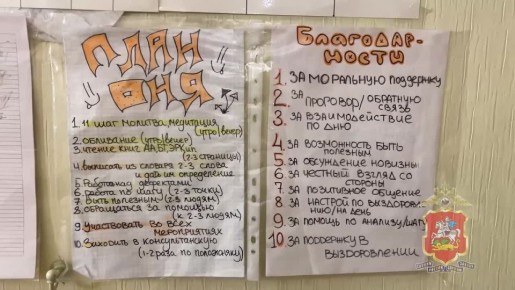 ПЛАН
ДНЯ
1. 11 шаг молитва, медитация
(утро/вечер)
2. обливание (утро/вечер)
3. чтение книг АА, БТ, ЭР
(2-3 страницы)
4. выписать из словаря 2-3 слова
и дать им определение
5. Работа над дефектами
6. работа по шагу (2-3 точки)
7. Быть полезным (2-3 людям)
8. обращаться за помощью
(к 2-3 людям)
9. Участвовать во всех
мероприятиях
10. Заходить в консультанскую
(1-2 раза по положняку)
БЛАГОДАР-
НОСТИ
1. ЗА МОРАЛЬНУЮ поддержку
2. ЗА
ПРОГОВОР/ОБРАТНУЮ
СВЯЗЬ
3. ЗА ВЗАИМОДЕЙСТВИЕ
ПО ДНЮ
4. ЗА ВОЗМОЖНОСТЬ БЫТЬ
ПОЛЕЗНЫМ
5. ЗА ОБСУЖДЕНИЕ НОВИЗНЫ
6. ЗА ЧЕСТНЫЙ ВЗГЛЯД СО
СТОРОНЫ
7. ЗА ПОЗИТИВНОЕ ОБЩЕНИЕ
8 ЗА НАСТРОЙ ПО ВЫЗДОРОВЛЕ-
НИЮ/НА ДЕНЬ
9. ЗА ПОМОЩЬ ПО АНАЛИЗУ/ШАГУ
10 ЗА ПОДДЕРЖКУ В
ВЫЗДОРОВЛЕНИИ